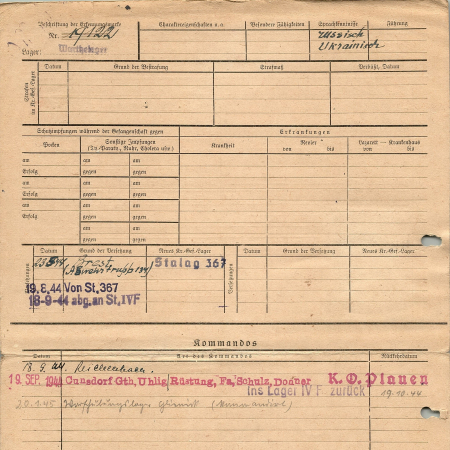 Beschriftung der Erkennungsmarke
Nr. 19122
Lager: Warthelager
Charaktereigenschaften u. a.
Besondere Fähigkeiten
Sprachkenntnisse
russisch
Ukrainisch
Führung
Strafen in Kr.-Gef.-Lager
Datum
Grund der Bestrafung
Strafmaß
Verbüßt, Datum
Schutzimpfungen während der Gefangenschaft gegen
Pocken
Sonstige Impfungen
(Ty-Paraty., Ruhr, Cholera usw.)
am
Erfolg
am
Erfolg
am
Erfolg
am
Erfolg
am
gegen
am
gegen
am
gegen
am
gegen
am
gegen
am
gegen
am
gegen
am
gegen
Erkrankungen
Krankheit
Revier
von bis
Lazarett — Krankenhaus
von bis
Versetzungen
Datum
Grund der Versetzung
Neues Kr.-Gef.-Lager
Brest.
Stalag 367
19.8.44 Von St.367
18-9-44 abg.an St.IVF
Versetzungen
Datum
Grund der Versetzung
Neues Kr.-Gef.-Lager
Kommandos
Datum
Art des Kommandos
Rückkehrdatum
18.9.44. Reichenhain.
19. SEP. 1944 Cunsdorf Gth, Uhlig/Rüstung, Fa, Schulz, Donner K. O. Plauen
ins Lager IV F zurück 19.10.44
20.1.45